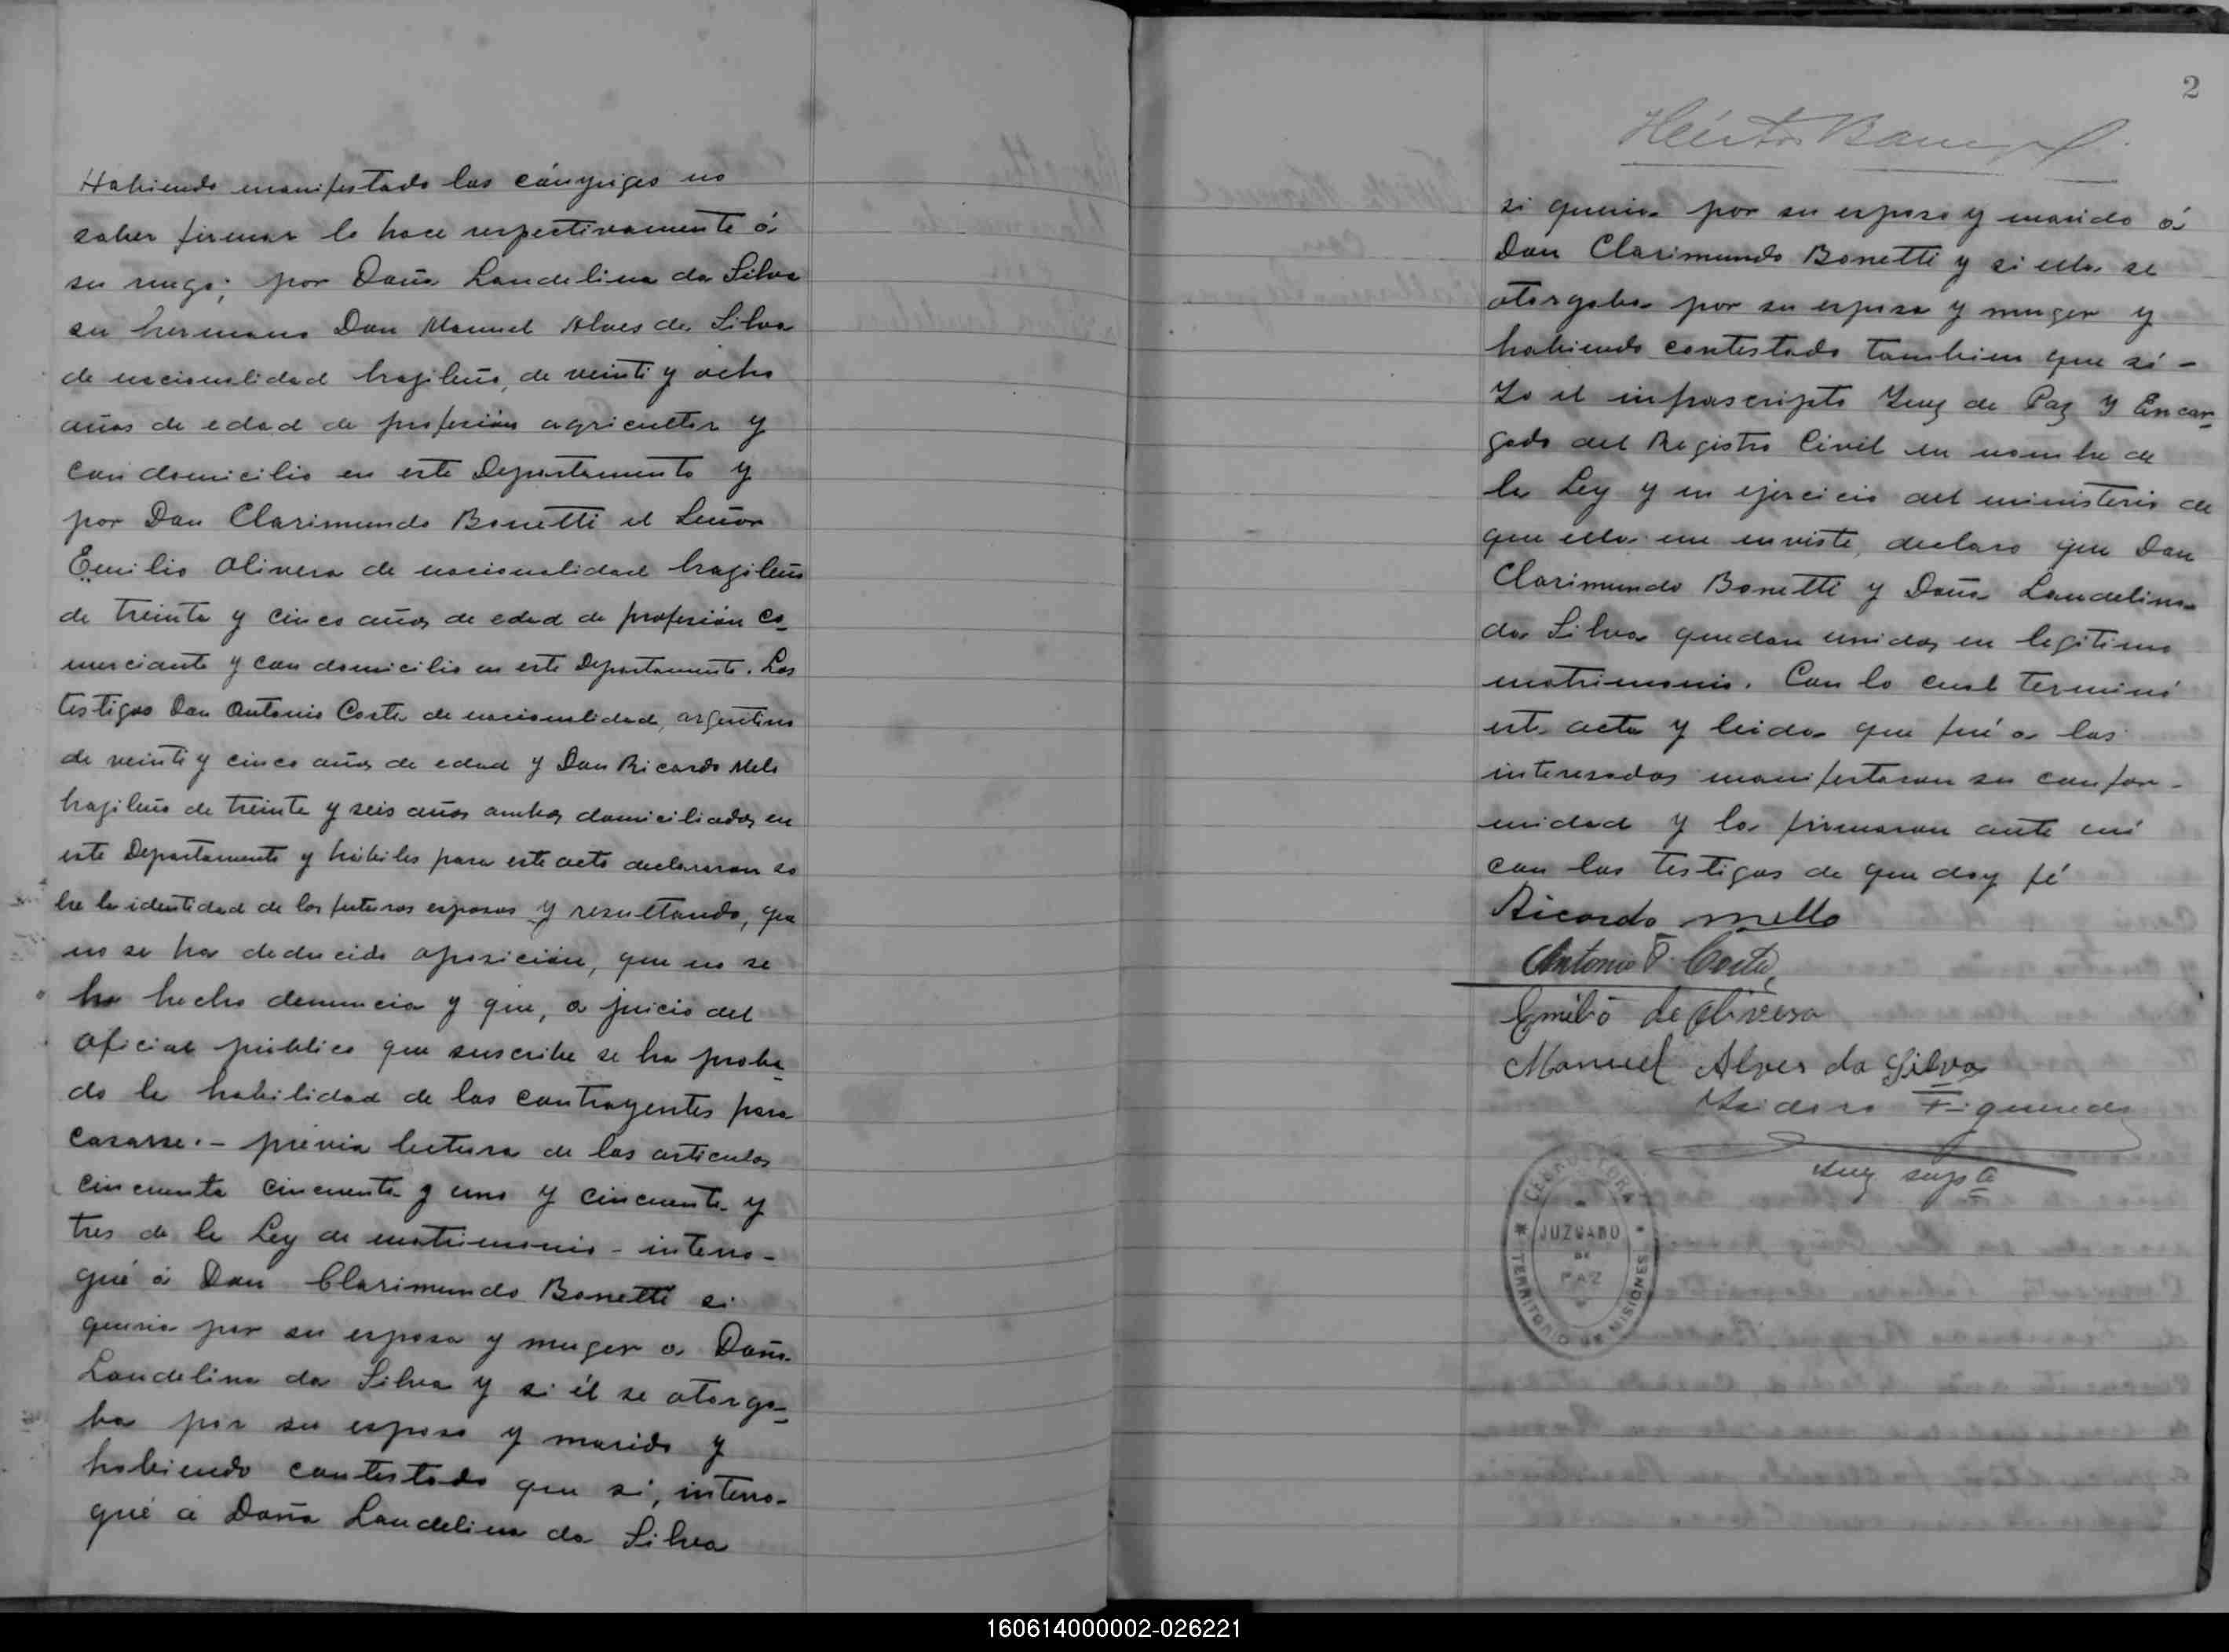 Habiendo manifestado los cónyuiges no
saber firmar lo hace respectivamente á
su ruego; por Doña Laudelina da Silva
su hermano Don Manuel Alves da Silva
de nacionalidad brazileño, de veinti y ocho
años de edad de profesión agricultor y
con domicilio en este Departamento y
por Don Clarimundo Bonetti el Señor
Emilio Olivera de nacionalidad brazileño
de treinta y cinco años de edad de profesión co-
merciante y con domicilio en este Departamento. Los
testigos Don Antonio Costa de nacionalidad, argentino
de veinti y cinco años de edad y Don Ricardo Melo
brazileño de treinta y seis años ambos domiciliados en
este Departamento y hábiles para este acto declararon so
bre la identidad de los futuros esposos y resultando, que
no se ha deducido oposición, que no se
ha hecho denuncia y que, a juicio del
oficial público que suscribe se ha proba-
do la habilidad de los contrayentes para
casarse.- previa lectura de los artículos
cincuenta cincuenta y uno y cincuenta y
tres de la Ley de matrimonio - interro-
gué á Don Clarimundo Bonetti si
queria por su esposa y muger a Doña
Laudelina da Silva y si él se otorga-
ba por su esposo y marido y
habiendo contestado que sí, interro-
gué á Doña Laudelina da Silva
2
si queria por su esposo y marido á
Don Clarimundo Bonetti y si ella se
otorgaba por su esposa y muger y
habiendo contestado tambien que sí -
Yo el infrascripto Juez de Paz y Encar-
gado del Registro Civil en nombre de
la Ley y en ejercicio del ministerio de
que ella me enviste, declaro que Don
Clarimundo Bonetti y Doña Laudelina
da Silva quedan unidos en legitimo
matrimonio. Con lo cual terminó
este acta y leida que fué a los
interesados manifestaron su confor-
midad y la firmaron ante mí
con los testigos de que doy fé
Ricardo Mello
Antonio F. Costa
Emilio de Olivera
Manuel Alves da Silva
Isidoro Figueredo
Juez supte
JUZGADO
DE
PAZ
TERRITORIO DE MISIONES
160614000002-026221